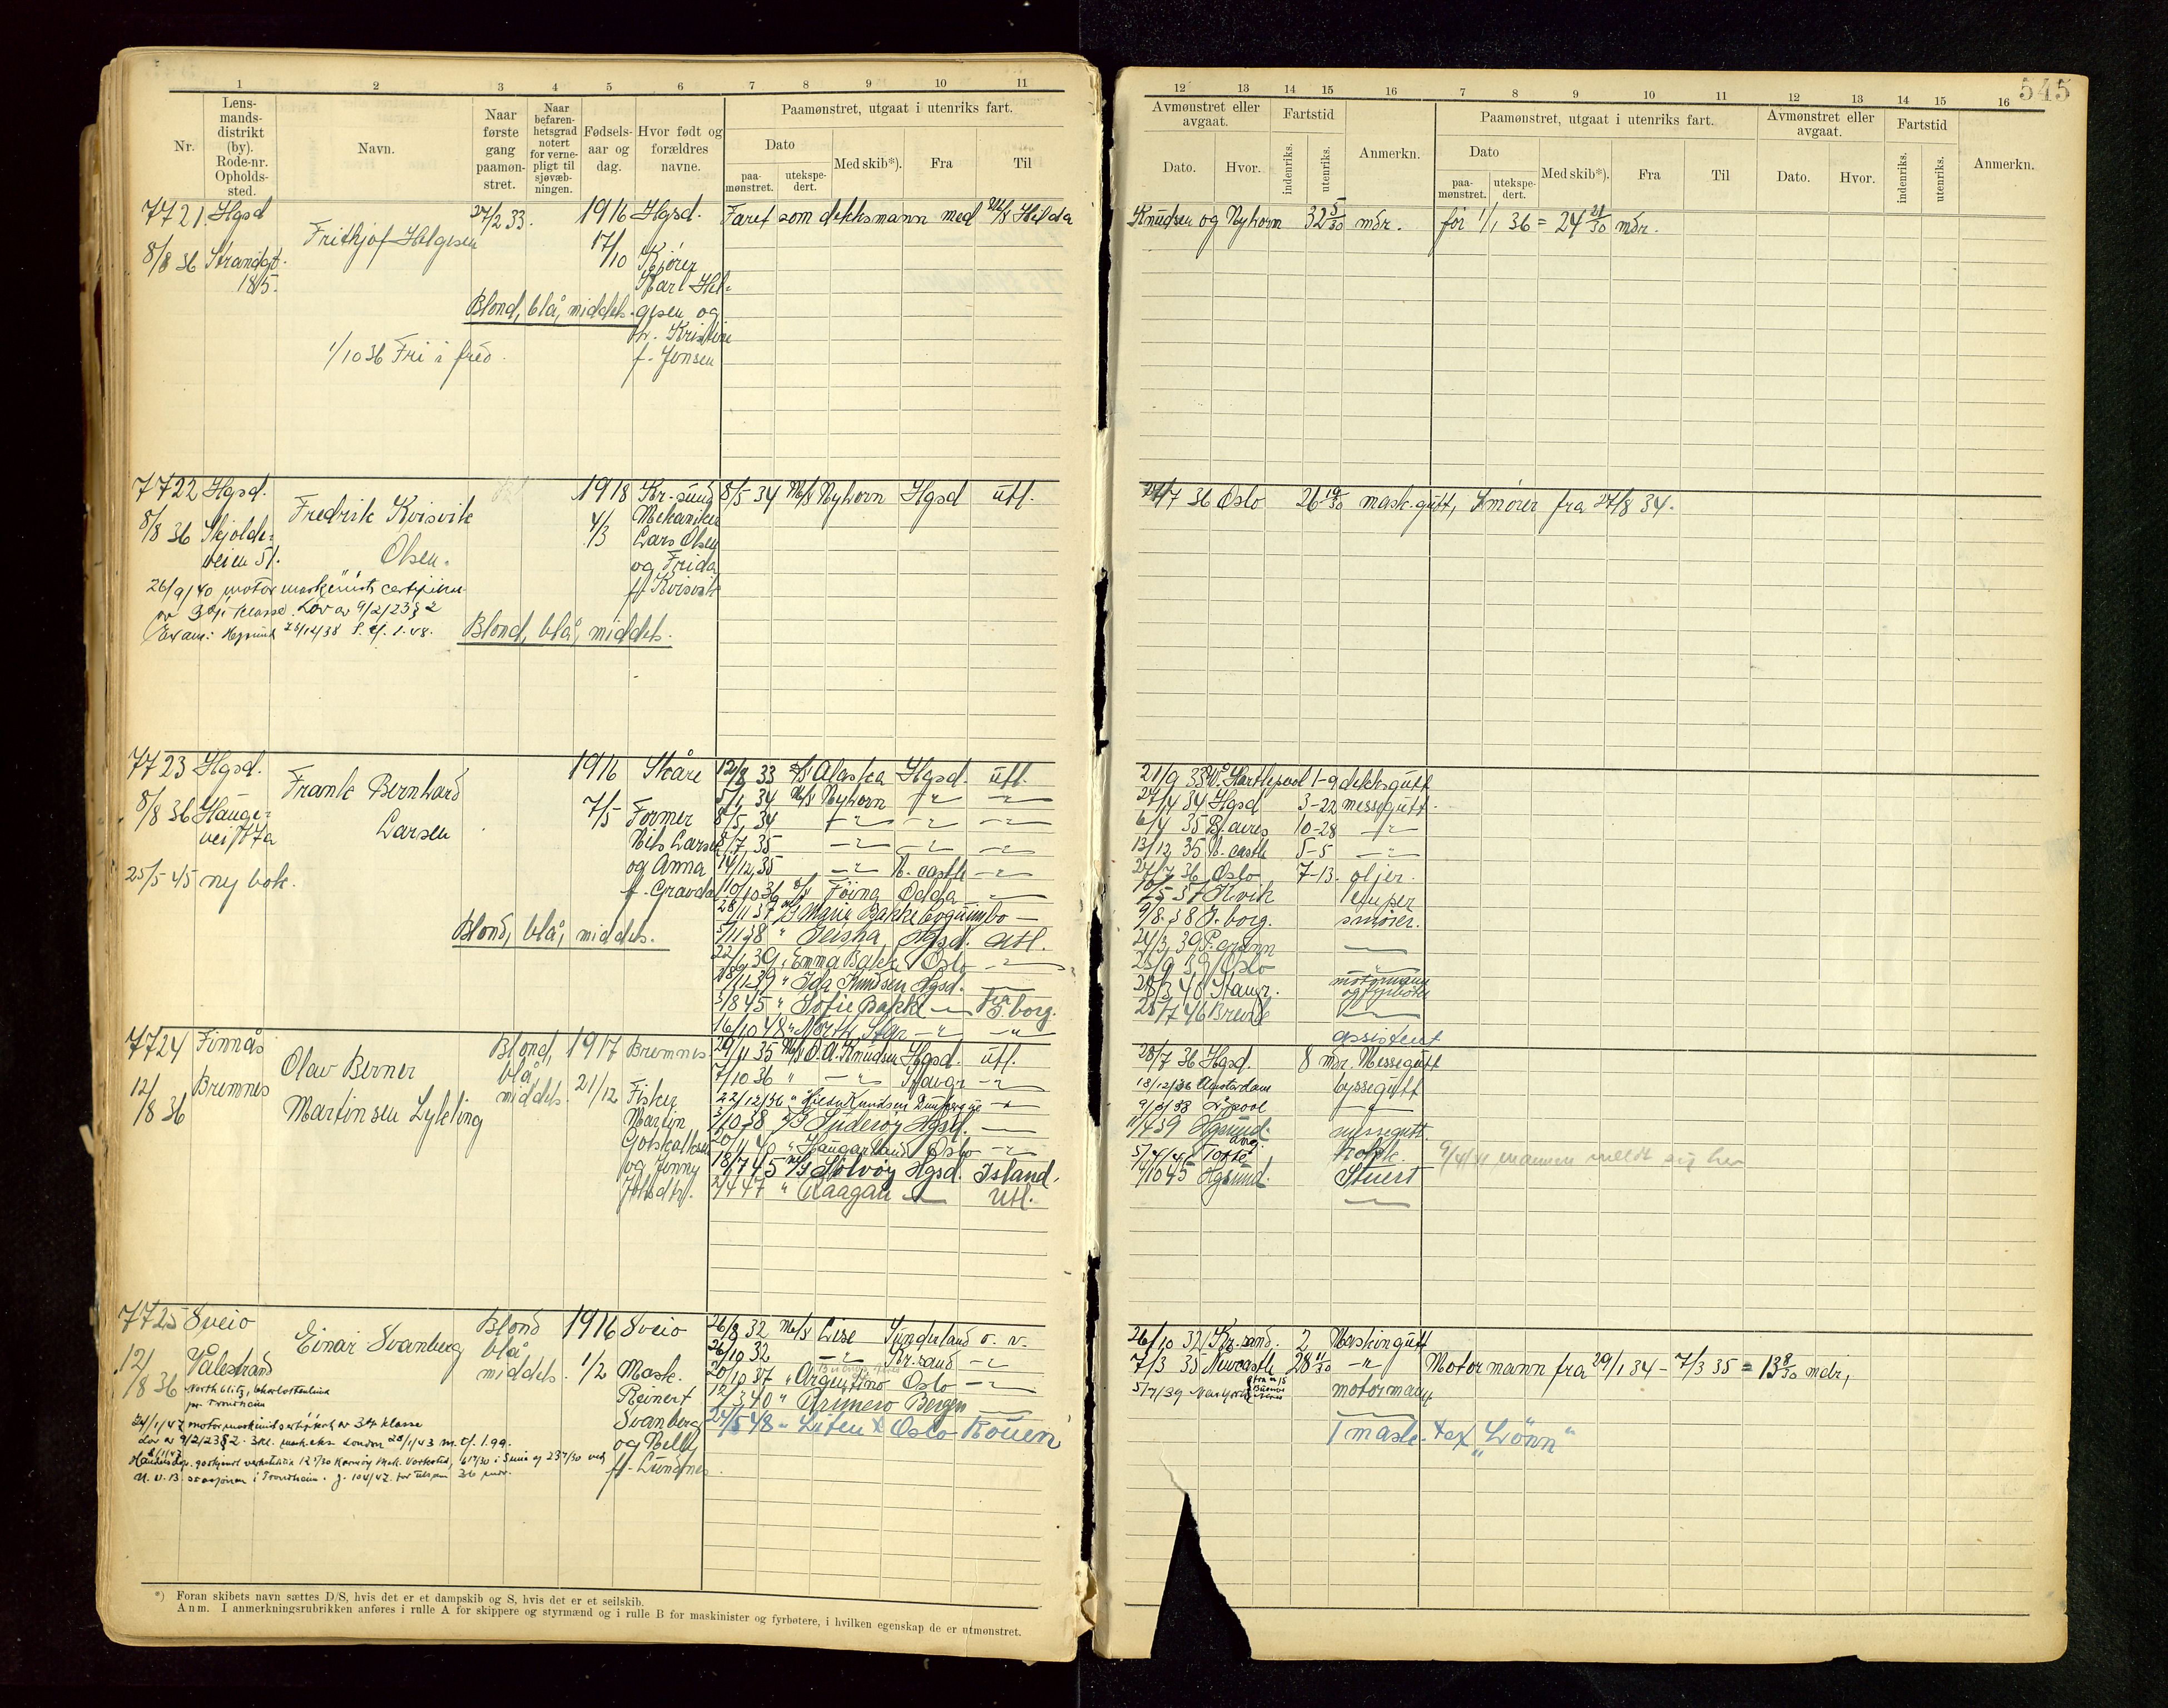 545
1 2 3 4 5 6 7 8 9 10 11
Nr.
Lens-
mands-
distrikt
(by).
Rode-nr.
Opholds-
sted.
Navn.
Naar
første
gang
paamøn-
stret.
Naar
befaren-
hetsgrad
notert
for verne-
pligt til
sjøvæb-
ningen.
Fødsels-
aar og
dag.
Hvor født og
forældres
navne.
Paamønstret, utgaat i utenriks fart.
Dato
paa-
mønstret.
utekspe-
dert.
Med skib*).
Fra
Til
12 13 14 15 16 7 8 9 10 11 12 13 14 15 16
Avmønstret eller
avgaat.
Dato. Hvor.
Fartstid
indenriks. utenriks.
Anmerkn.
Paamønstret, utgaat i utenriks fart.
Dato
paa-
mønstret.
utekspe-
dert.
Med skib*).
Fra
Til
Avmønstret eller
avgaat.
Dato. Hvor.
Fartstid
indenriks. utenriks.
Anmerkn.
7721. Hgsd 27/2 33. 1916 Hgsd. Faret som dekksmann med M/S Hilda
Knudsen og Nyhorn 32 5/30 mdr. før 1/1 36 = 24 21/30 mdr.
Frithjof Helgesen 17/10
8/8 36 Strandgt. Kjører
185. Karl Hel-
Blond, blå, middels. gesen og
h. Kristine
1/10 36 Fri i fred. f. Jensen
7722 Hgsd. 1918 Kr-sund 8/5 34 M/S Nyhorn Hgsd utl.
27/7 36 Oslo 26 19/30 mask.gutt, Smører fra 27/8 34.
Fredrik Kvisvik
8/8 36 Skjolde- 4/3 Mekaniker
veien 51. Olsen. Lars Olsen
og Frida
f. Kvisvik
26/9/40 motormaskinist
3dje klasse. Lov av 9/2/23 § 2
Blond, blå, middels.
7723 Hgsd. 1916 Skåre 12/8 33 Alaska Hgsd. utl.
21/9 33 W. Hartlepool 1-9 dekksgutt
Frank Bernhard
5/1 34 M/S Nyhorn
27/4 34 Hgsd 3-22 messegutt.
8/8 36 Hauge- 7/5 Former 8/5 34
vei 77a Larsen Nils Larsen 8/7 35
6/4 35 B. aires 10-28
og Anna 14/12 35 N. castle
13/12 35 N. castle 5-5
25/5-45 ny bok. f. Gravdal 10/10 36 Föina Odda
27/7 36 Oslo 7-13. oljer.
10/5 37 Kvik lemper
28/11 37 Marie Bakke
9/8 38 J. borg. smører.
Blond, blå, middels. 5/11 38 " Geisha Hgsd. utl.
24/3 39 P. grunn
22/6 39 " Emma Bakke Oslo
23/9 39 Oslo
18/11 39 " Ida Knudsen Hgsd.
28/3 40 Stavgr. motormann
3/8 45 " Sofie Bakke fra G. borg.
25/7 46 Brevik
16/10 48 " North Star
assistent
7724 Finnås Blond, 1917 Bremnes 29/11 35 M/S O. A. Knudsen Hgsd. utl.
28/7 36 Hgsd. 8 mdr. Messegutt
Olav Berner blå 7/10 36 " Stavgr
12/8 36 Bremnes middels. 21/12 Fisker 22/12/36 " Hilda Knudsen
18/12/36 Amsterdam byssegutt
Martinsen Lykling Martin 3/10 38 Suderøy Hgsd.
9/3/38 L.pool
Gotskalksen 20/11 40 " Haugarland Oslo
11/4 39 Hgsund. messegutt.
og Jenny 18/7 45 M/S Sölvöy Hgsd. Island.
Tofte kokk. 9/4/41 mannen meldt sig her
Johsdtr. 2/4 47 " Raagan Utl.
7/10 45 Hgsund. Stuert
7725 Sveio Blond 1916 Sveio 26/8 32 M/S Lise Sunderland o. v.
26/10 32 Kr.sand. 2 Maskingutt
Einar Svanberg blå 26/10 32 Kr.sand
12/8 36 Vålestrand middels. 1/2 Mask. 20/10 37 " Argentino Oslo
7/3 35 Newcastle 28 11/30 Motormann fra 29/1 34 - 7/3 35 = 13 8/30 mdr,
Reinert 12/3 40 " Primero Bergen
5/7/39 motormann
Svanberg 24/5 48 " Lisen Oslo Rouen
I mask. ex „Lönn"
og Nelly
f. Lundnes.
24/1/47 motormaskinistsertifikat av 3dje klasse
Lov av 9/2/23 § 2. 3kl. mask.eks. London 28/1/43
*) Foran skibets navn sættes D/S, hvis det er et dampskib og S, hvis det er et seilskib.
Anm. I anmerkningsrubrikken anføres i rulle A for skippere og styrmænd og i rulle B for maskinister og fyrbøtere, i hvilken egenskap de er utmønstret.